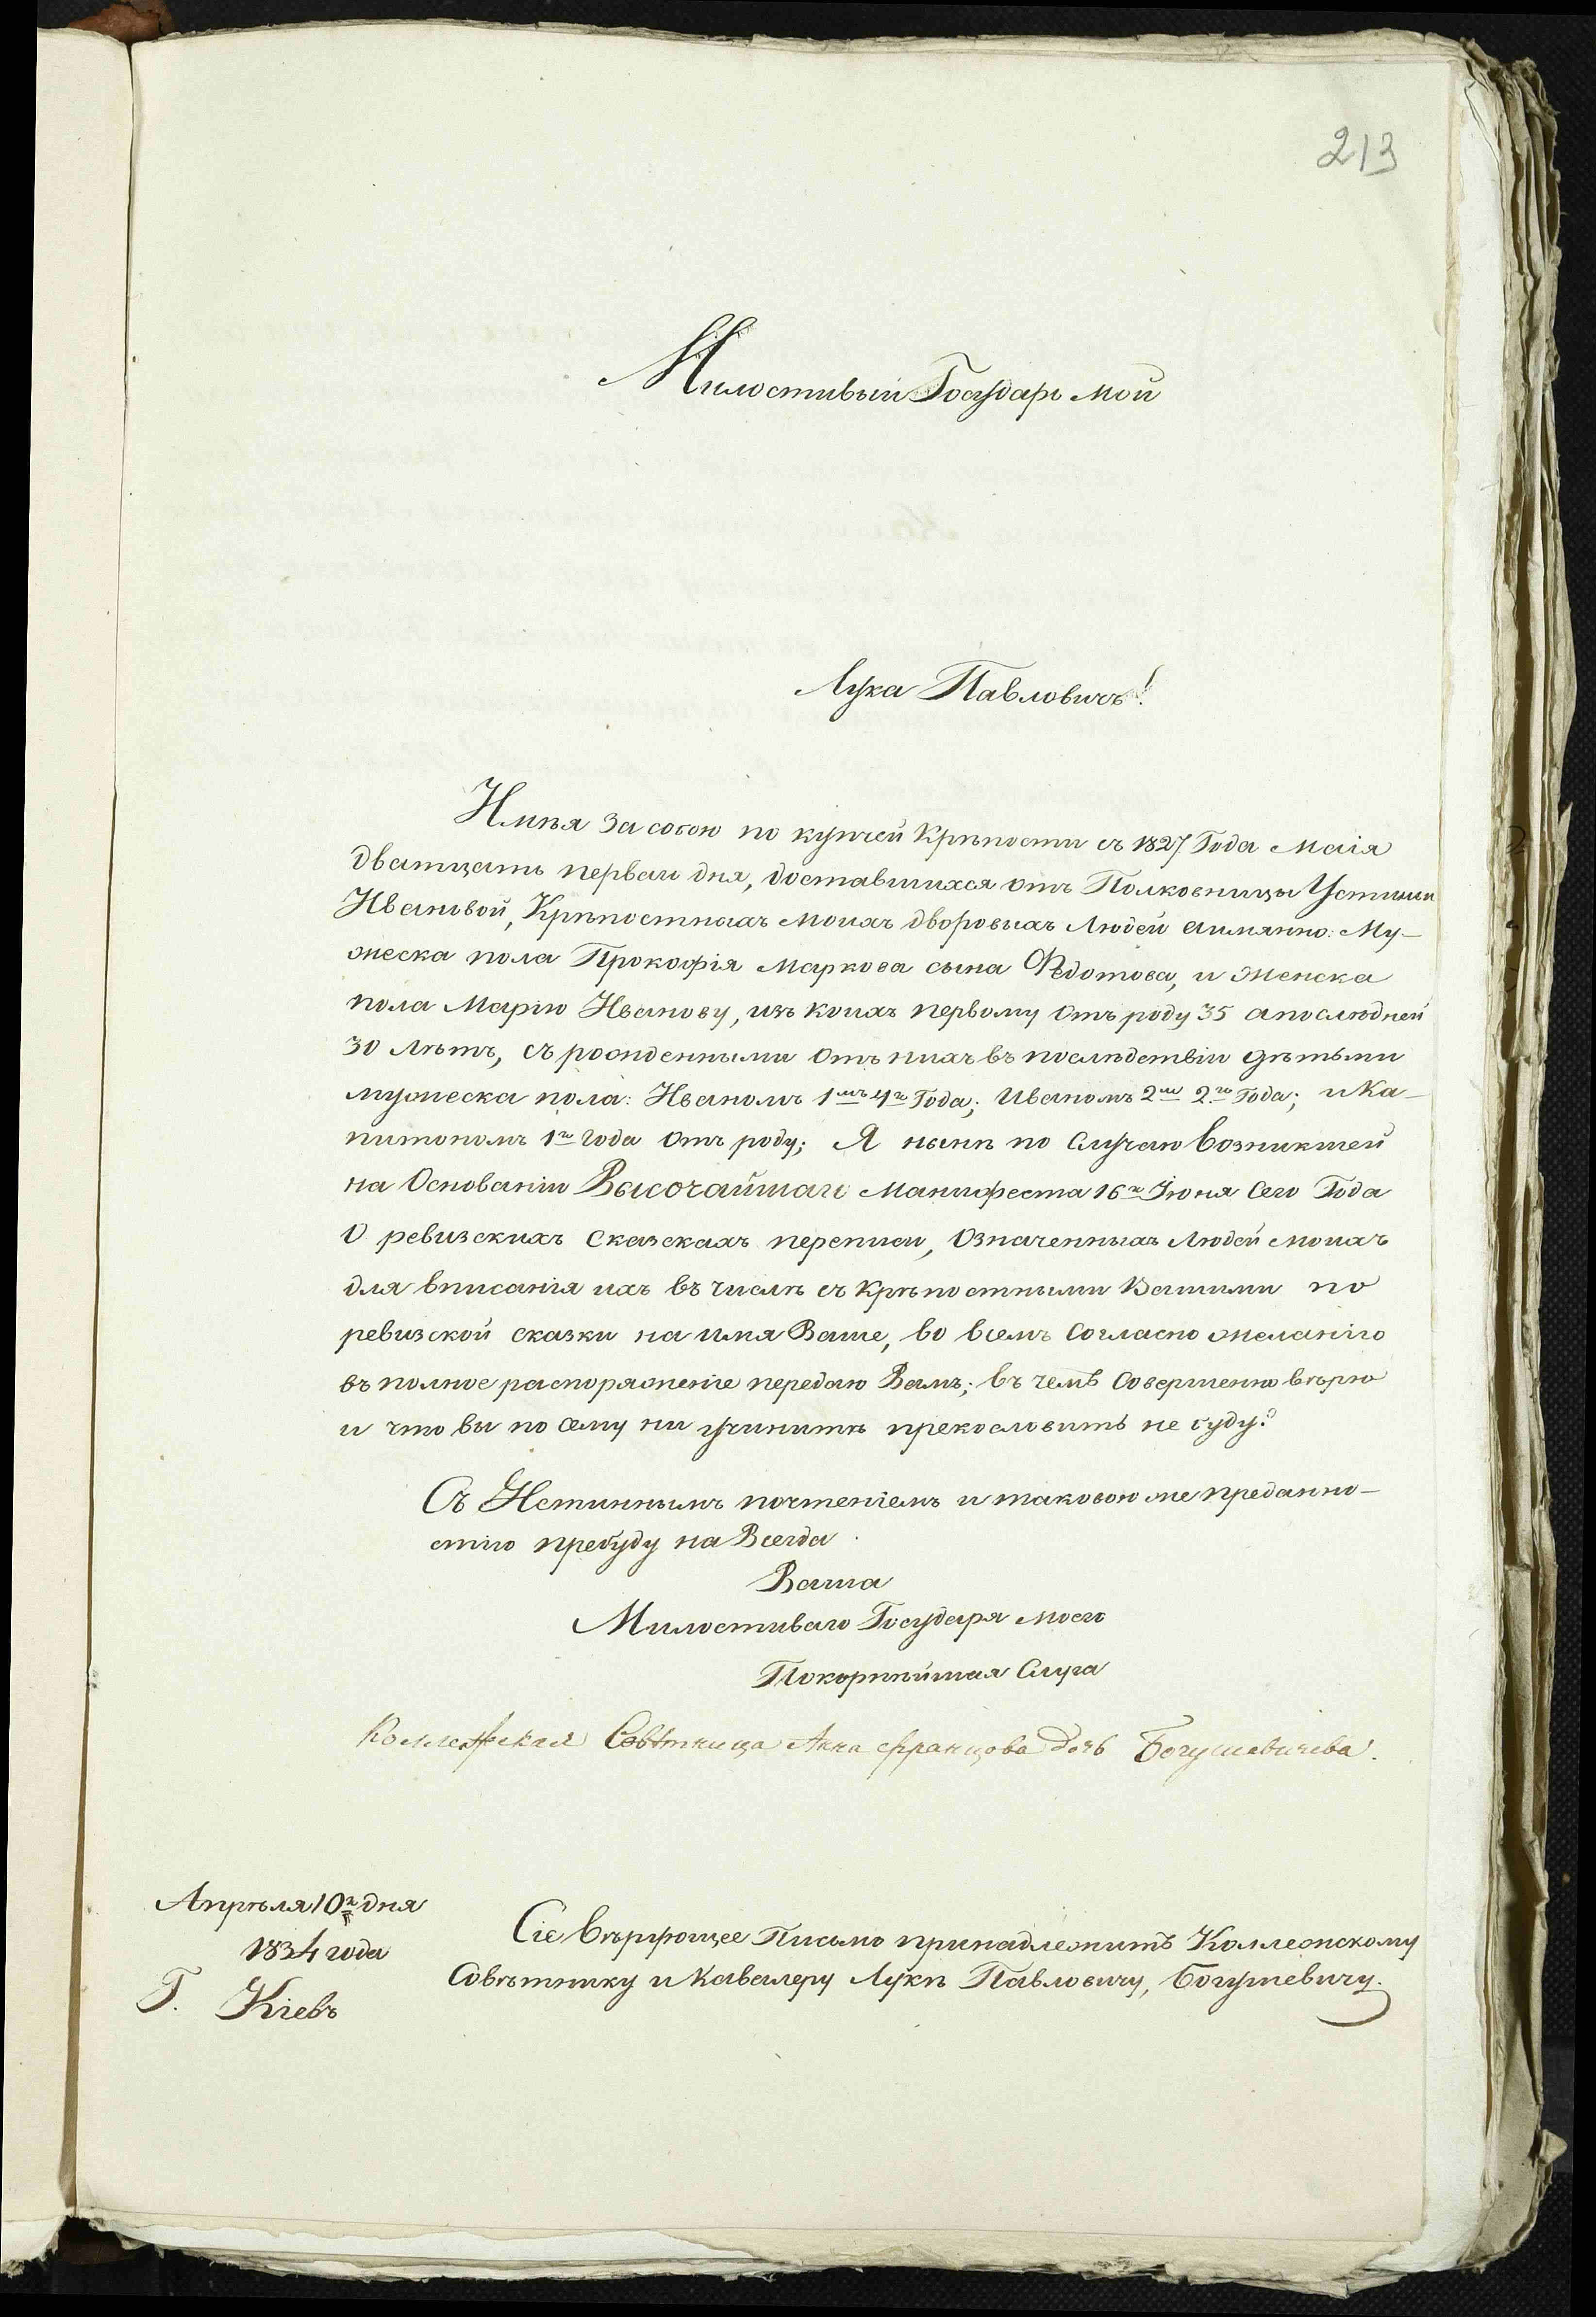 213
Милостивый Государь мой
Лука Павловичъ!
Имѣя за собою по купчей крѣпости съ 1827 Года Маія
дватцать перваго дня, доставшихся отъ Полковницы Устиньи
Ивановой, Крѣпостныхъ моихъ дворовыхъ Людей аимянно: Му-
жеска пола Прокофія Маркова сына Ѳедотова, и женска
пола Марію Иванову, изъ коихъ первому отъ роду 35 апослѣдней
30 лѣтъ, съ рожденными отъ нихъ въ послѣдствіи дѣтьми
мужеска пола: Иваномъ 1мъ 4го Года; Иваномъ 2мъ 2го Года; и Ка-
питономъ 1го года отъ роду; Я нынѣ по случаю возникшей
на Основаніи Высочайшаго Манифеста 16го Іюня сего Года
О ревизскихъ сказскахъ переписи, Означенныхъ Людей моихъ
для вписанія ихъ въ числѣ съ крѣпостными Вашими по
ревизской сказки на имя Ваше, во всемъ согласно желанію
въ полное распоряженіе передаю Вамъ; въ чемъ совершенно вѣрю
и что вы по сему ни учинитѣ прекословить не буду.
Съ Истиннымъ почтеніемъ и таковою же преданно-
стію пребуду на Всегда
Ваша
Милостиваго Государя моего
Покорнѣйшая Слуга
Коллежская Совѣтница Анна Францова дочь Богушевичева.
Апрѣля 10го дня
1834 года
Г. Кіевъ
Сіе вѣрующее Письмо принадлежитъ Коллежскому
Совѣтнику и Кавалеру Лукѣ Павловичу, Богушевичу.